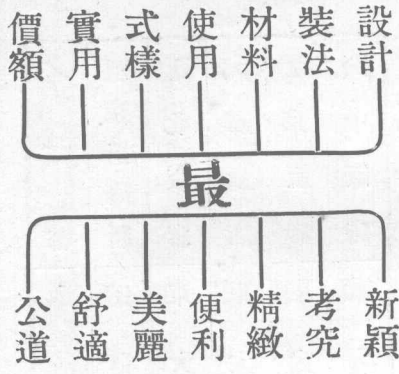 設計
裝法
材料
使用
式樣
實用
價額
最
新穎
考究
精緻
便利
美麗
舒適
公道